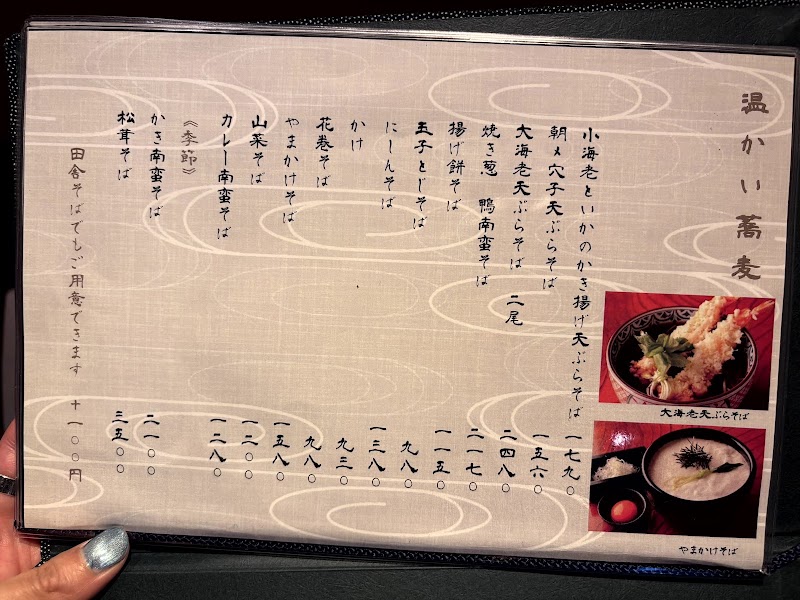 温かい蕎麦
小海老といかのかき揚げ天ぷらそば 一七九〇
朝〆穴子天ぷらそば 一五六〇
大海老天ぷらそば 二尾 二四八〇
焼き葱 鴨南蛮そば 二一七〇
揚げ餅そば 一一五〇
玉子とじそば 九八〇
にしんそば 一三八〇
かけ 九三〇
花巻そば 九八〇
やまかけそば 一五八〇
山菜そば 一二〇〇
カレー南蛮そば 一二八〇
《季節》
かき南蛮そば 二一〇〇
松茸そば 三五〇〇
田舎そばでもご用意できます +一〇〇円
大海老天ぷらそば
やまかけそば